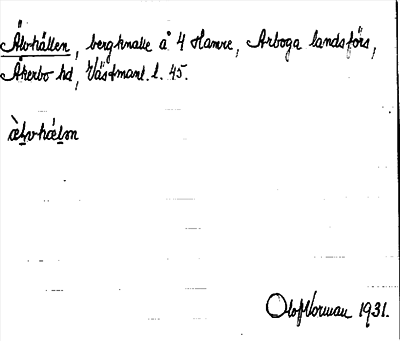 Älvhällen, bergknalle å 4 Hamre, Arboga landsförs,
Åkerbo hd, Västmanl. l. 45.
Olof Norman 1931.